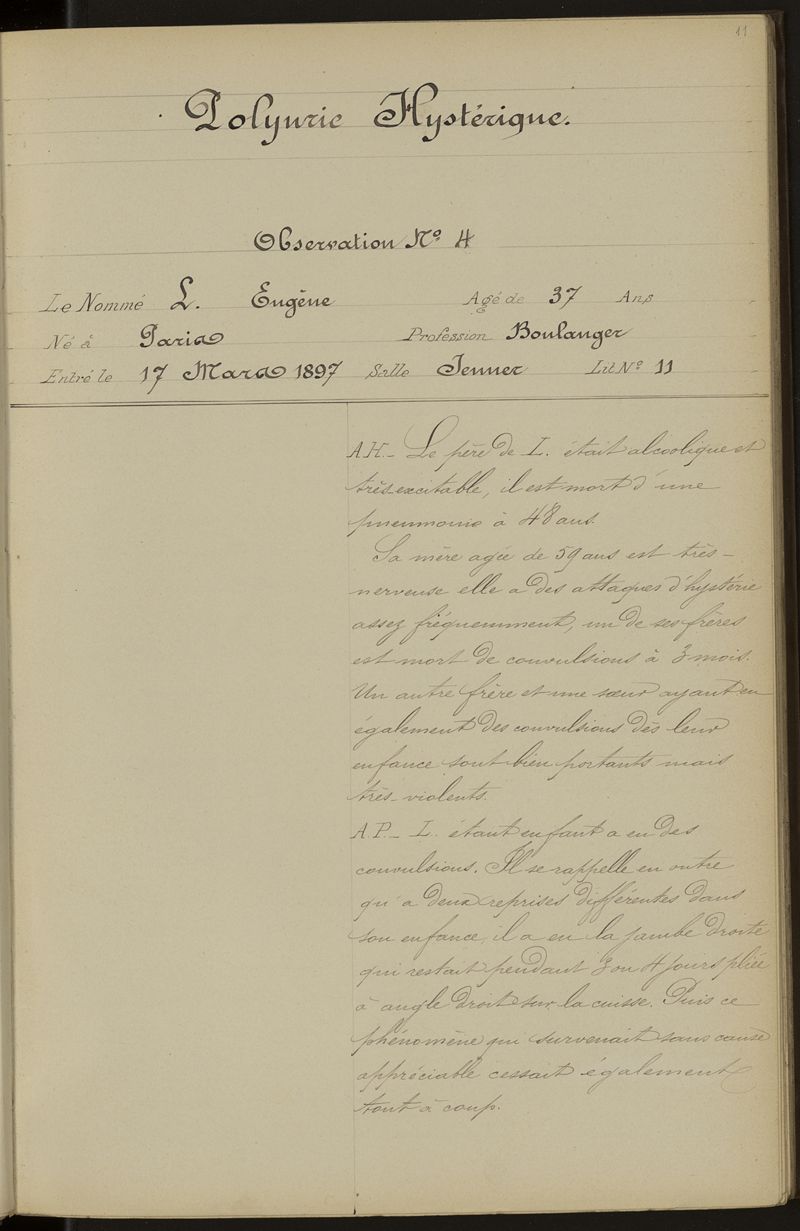 11
Polyurie Hystérique.
Observation No. 4
Le Nommé L. Eugène Agé de 37 Ans
Né à Paris Profession Boulanger
Entré le 17 Mars 1897 Salle Jenner Lit No. 11
A.H. _ Le père de L. était alcoolique et
très excitable, il est mort d'une
pneumonie à 48 ans.
Sa mère agée de 59 ans est très-
nerveuse elle a des attaques d'hystérie
assez fréquemment, un de ses frères
est mort de convulsions à 3 mois.
Un autre frère et une sœur ayant eu
également des convulsions dès leur
enfance sont bien portants mais
très-violents.
A.P. _ L. étant enfant a eu des
convulsions. Il se rappelle en outre
qu'a deux reprises différentes dans
son enfance, il a eu la jambe droite
qui restait pendant 3 ou 4 jours pliée
à angle droit sur la cuisse. Puis ce
phénomène qui survenait sans cause
appréciable cessait également
tout à coup.